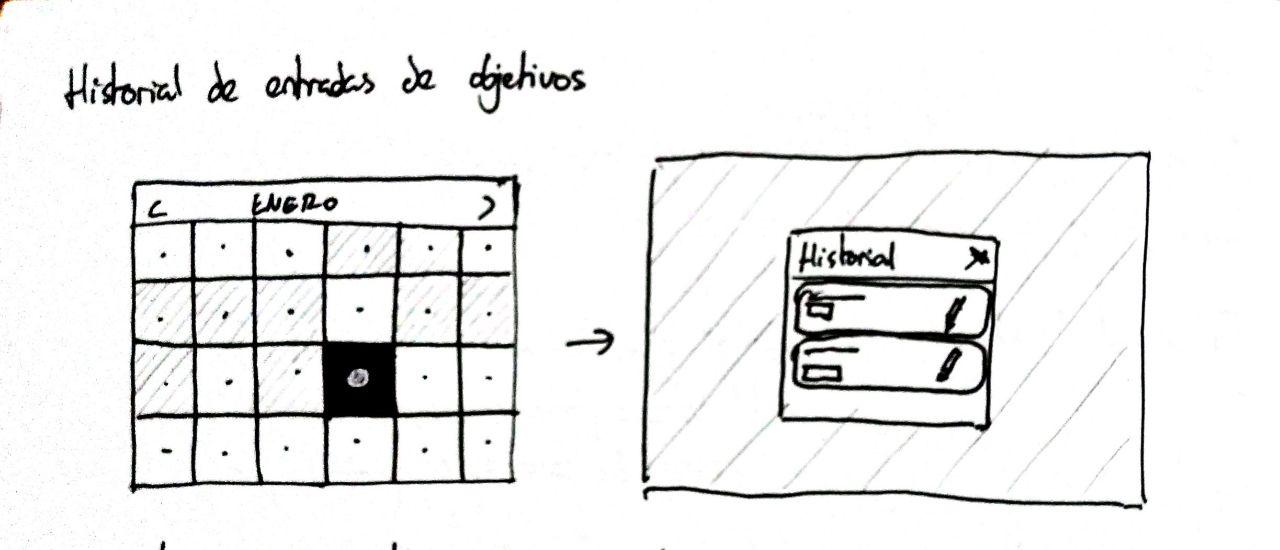 Historial de entradas de objetivos
< ENERO >
Historial x